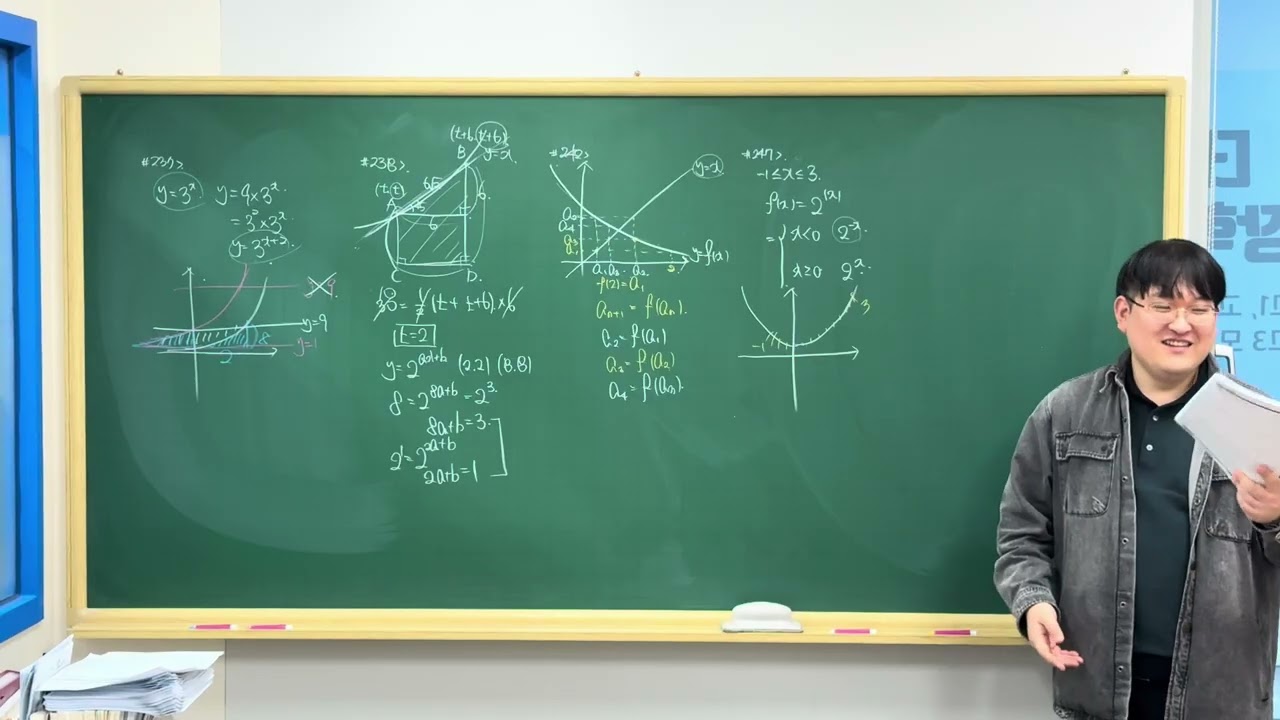 #237>.
y=3^x
y=9×3^x.
=3^2×3^x.
y=3^{x+2}.
y=9
y=1
2
8
#238>.
(t+6, t+6)
B
y=x
(t,t)
A
6√2
6
6.
C
D.
30=1/2(t+t+6)×6
t=2
y=2^{ax+b} (2.2) (8.8)
8=2^{8a+b}=2^3.
8a+b=3.
2^1=2^{2a+b}
2a+b=1
#242>
y=x
y=f(x)
f(2)=a_1
a_{n+1}=f(a_n).
a_2=f(a_1)
a_3=f(a_2)
a_4=f(a_3).
#247>.
-1≤x≤3.
f(x)=2^{|x|}
= x<0 2^{-x}
x≥0 2^x.
-1
3